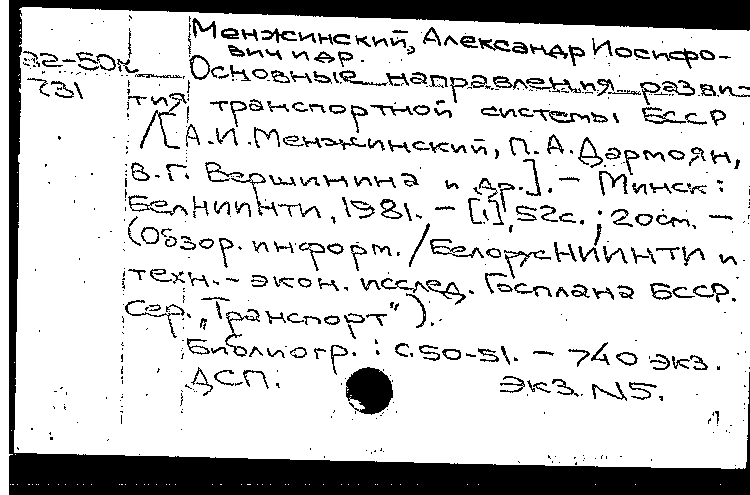 Менжинский, Александр Иосифо-
вич и др.
82-50к
Основные направления разви-
231
тия транспортной системы БССР
/[А.И.Менжинский, П.А.Дармоян,
В.Г. Вершинина и др.]. – Минск:
БелНИИНТИ, 1981. – [1], 52с.; 20см. –
(Обзор. информ. / БелорусНИИНТИ и
техн.-экон. исслед. Госплана БССР.
Сер. „Транспорт").
Библиогр.: с.50-51. – 740 экз.
ДСП. Экз. N5.